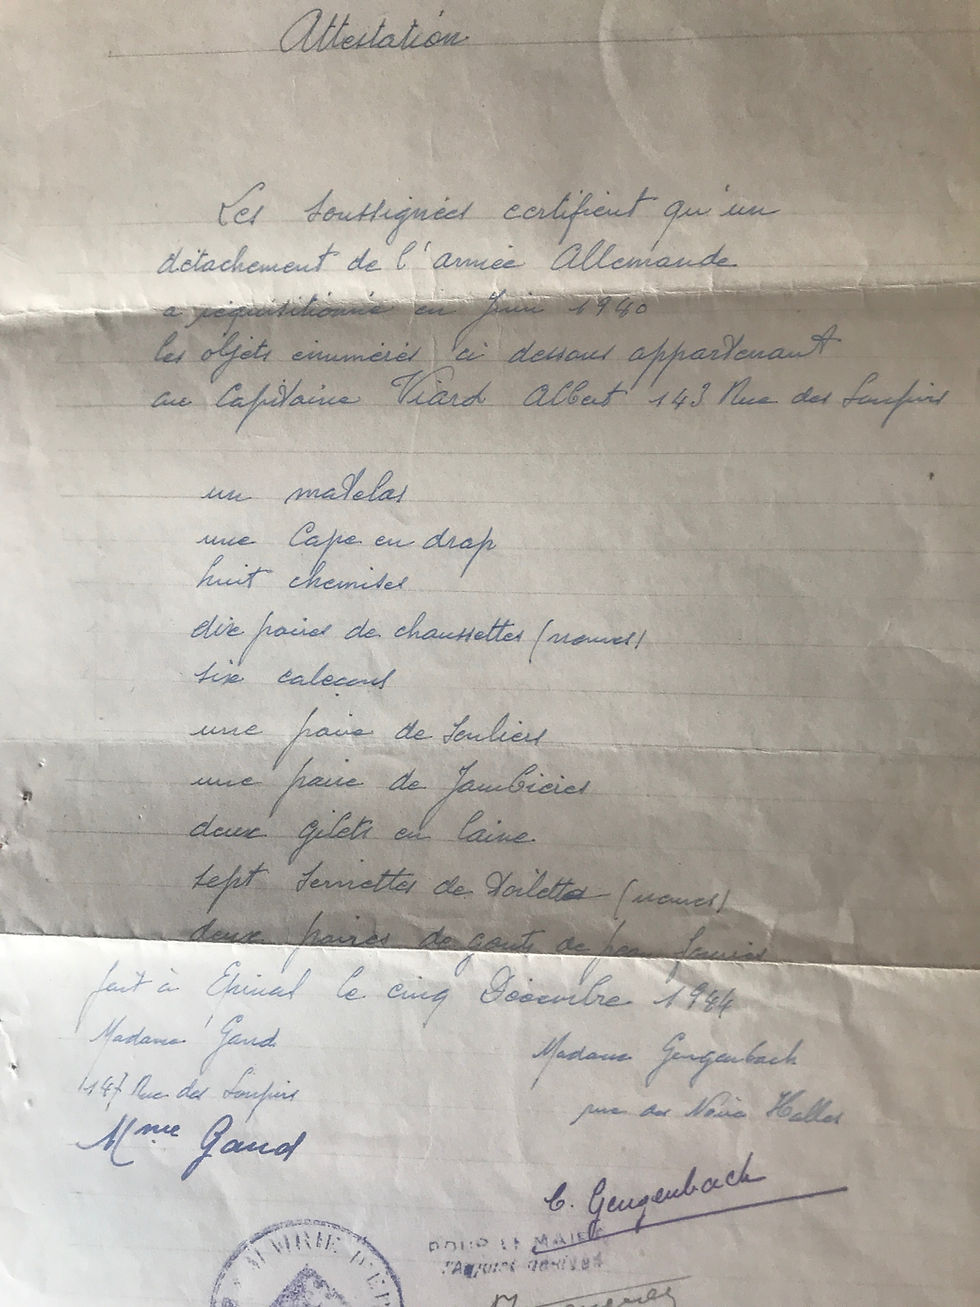 Attestation
Les soussignées certifient qu'un
détachement de l'armée Allemande
a réquisitionné en Juin 1940
les objets énumérés ci dessous appartenant
au Capitaine Viard Albert 143 Rue des Soupirs
un matelas
une Cape en drap
huit chemises
dix paires de chaussettes (neuves)
six caleçons
une paire de souliers
une paire de Jambières
deux gilets en laine
sept serviettes de toilette (neuves)
deux paires de gants de peau
fait à Epinal le cinq Décembre 1944
Madame Gand
Madame Gengenbach
147 Rue des Soupirs
rue des Halles
Mme Gand
C. Gengenbach
MAIRIE D'EP
POUR LE MAIRE